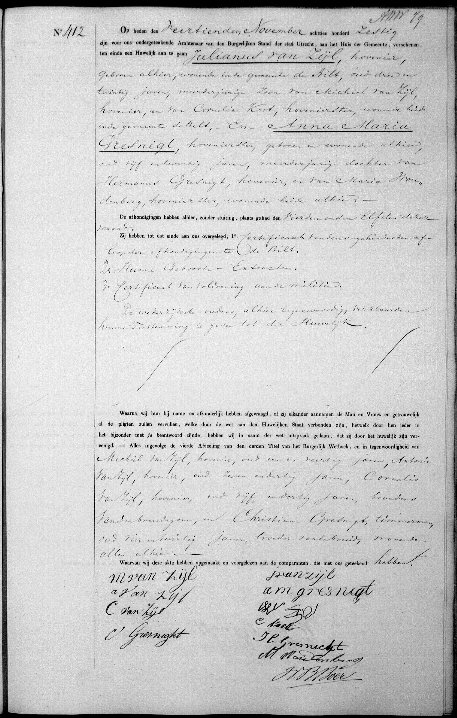 N° 412
Op heden den Veertienden November achttien honderd Zestig
zijn voor ons ondergeteekende Ambtenaar van den Burgerlijken Stand der stad Utrecht, aan het Huis der Gemeente, verschenen
ten einde een Huwelijk aan te gaan Julianus van Zijl, hovenier,
geboren alhier, wonende in de gemeente de Bilt, oud drie en
twintig jaren, meerderjarige Zoon van Michiel van Zijl,
hovenier, en van Cornelia Koot, hovenierster, wonende beide
in de gemeente de Bilt, En Anna Maria
Gresnigt, hovenierster, geboren en wonende alhier,
oud vijf en twintig jaren, meerderjarige dochter van
Hermanus Gresnigt, hovenier, en van Maria
hovenierster, wonende beide alhier,
De afkondigingen hebben alhier, zonder stuiting, plaats gehad den Vierden en den Elfden dezer
maand.
Zij hebben tot dat einde aan ons overgelegd: 1° Certificaat van
afkondigingen te de Bilt.
2° Hunne Geboorte Extracten.
3° Certificaat van voldoening aan de Militie.
De ouders, alhier tegenwoordig, verklaarden
hunne toestemming te geven tot dit Huwelijk.
Waarna wij hun bij name en afzonderlijk hebben afgevraagd, of zij elkander aannemen als Man en Vrouw en getrouwelijk
al de pligten zullen vervullen, welke door de wet aan den Huwelijken Staat verbonden zijn, hetwelk door hen ieder in
het bijzonder met ja beantwoord zijnde, hebben wij in naam der wet uitspraak gedaan, dat zij door het huwelijk zijn ver-
eenigd. — Alles ingevolge de vierde Afdeeling van den eersten Titel van het Burgerlijk Wetboek, en in tegenwoordigheid van
Michiel van Zijl, hovenier, oud en veertig jaren, Antonie
van Zijl, hovenier, oud en dertig jaren, Cornelis
van Zijl, hovenier, oud vijf en dertig jaren, broeders
van den bruidegom, en Christiaan Gresnigt, timmerman,
oud jaren, broeder van de bruid, wonende
allen alhier.
Waarvan wij deze akte hebben opgemaakt en voorgelezen aan de comparanten, die met ons geteekend hebben.
M van Zijl
J van Zijl
A van Zijl
A M gresnigt
C van Zijl
C Koot
C Gresnight